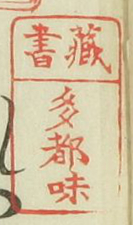 藏書
多都味